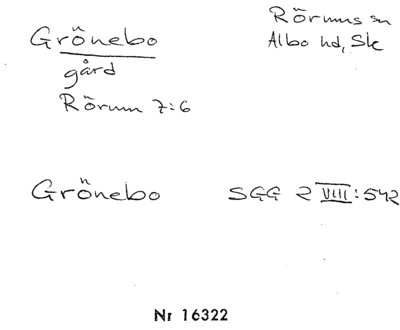 Grönebo
Rörums sn
Albo hd, Sk
gård
Rörum 7:6
Grönebo SGG 2 VIII:542
Nr 16322